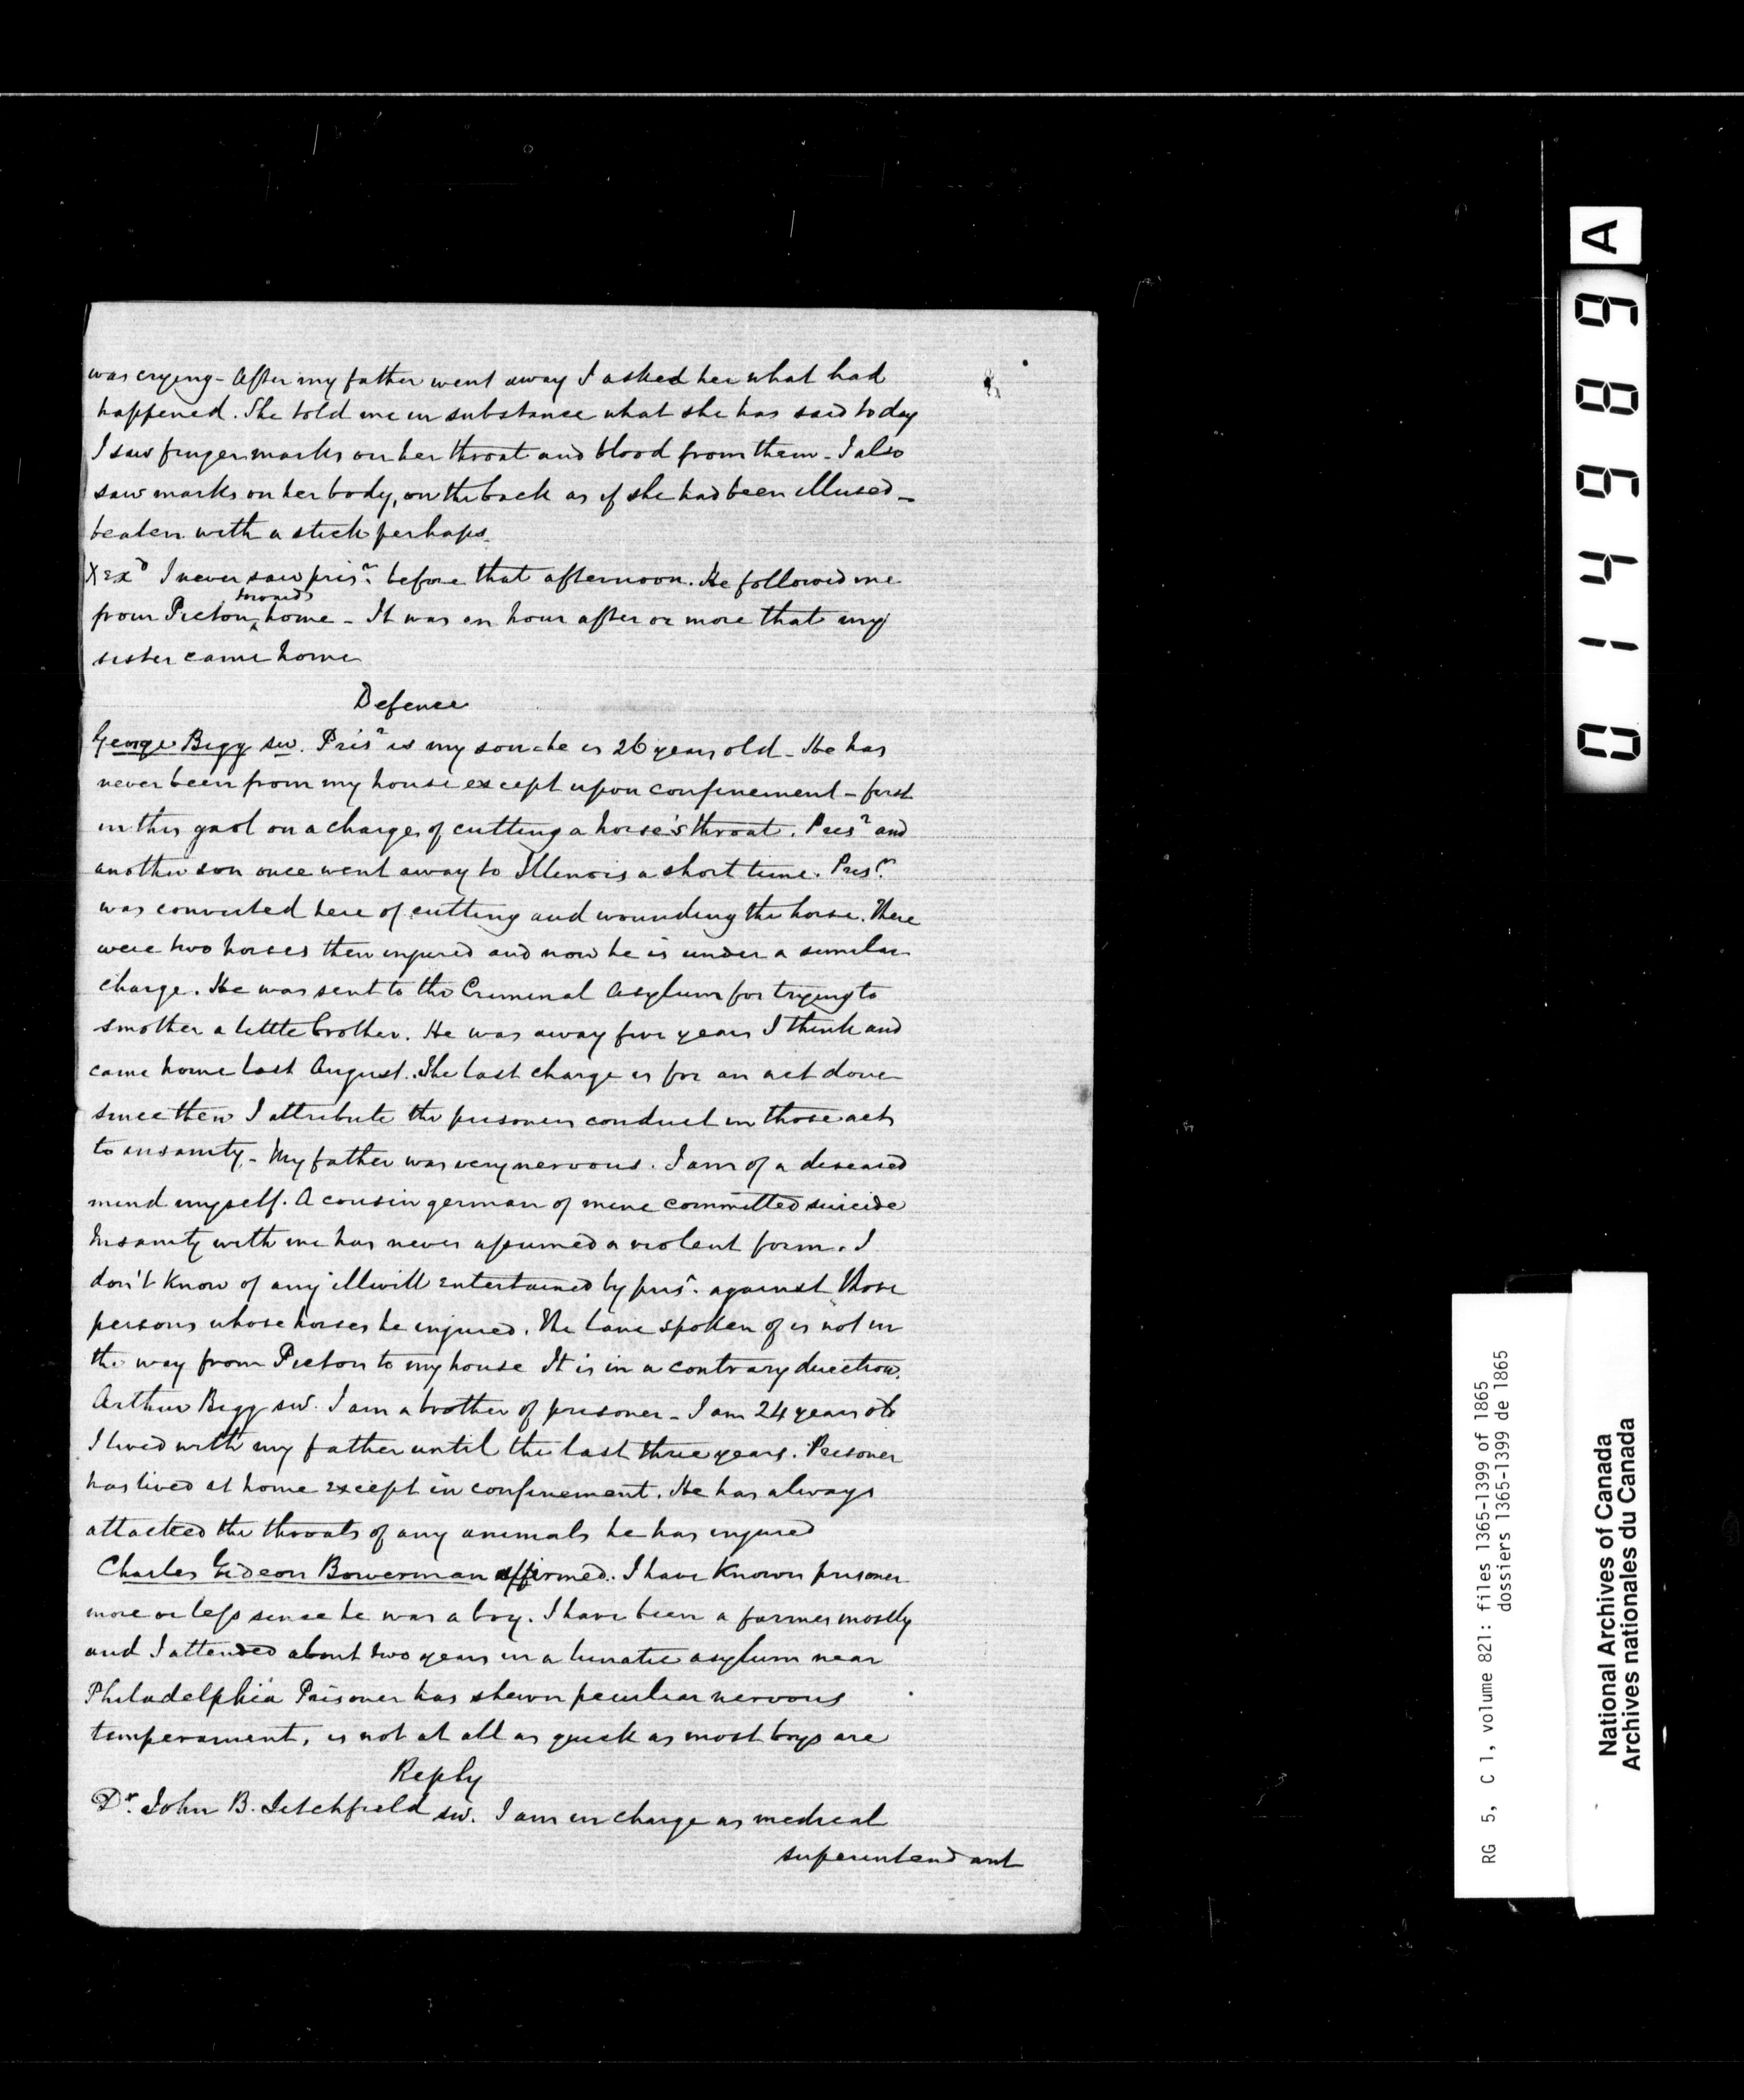 was crying - After my father went away I asked her what had
happened. She told me in substance what she has said today
I saw finger marks on her throat and blood from them - I also
saw marks on her body, on the back as if she had been illused -
beaten with a stick perhaps.
Xexd I never saw prisr. before that afternoon. He followed me
towards
from Picton home - It was an hour after or more that my
sister came home
Defence
George Bigg sw. Prisr is my son - he is 26 years old - He has
never been from my house except upon confinement - first
in this gaol on a charge of cutting a horse's throat. Prisr and
another son once went away to Illinois a short time. Prisr.
was convicted here of cutting and wounding the horse. There
were two horses then injured and now he is under a similar
charge. He was sent to the Criminal Asylum for trying to
smother a little brother. He was away five years I think and
came home last August. The last charge is for an act done
since then I attribute the prisoners conduct in those acts
to insanity - My father was very nervous. I am of a diseased
mind myself. A cousin german of mine committed suicide
Insanity with me has never assumed a violent form. I
don't know of any illwill entertained by prisr. against those
persons whose horses he injured. The lane spoken of is not in
the way from Picton to my house It is in a contrary direction.
Arthur Bigg sw. I am a brother of prisoner - I am 24 years old
I lived with my father until the last three years. Prisoner
has lived at home except in confinement. He has always
attacked the throats of any animals he has injured
Charles Gideon Bowerman affirmed. I have known prisoner
more or less since he was a boy. I have been a farmer mostly
and I attended about two years in a lunatic asylum near
Philadelphia Prisoner has shewn peculiar nervous
temperament, is not at all as quick as most boys are
Reply
Dr. John B. Litchfield sw. I am in charge as medical
superintendant
A
014989
RG 5, C 1, volume 821: files 1365-1399 of 1865
dossiers 1365-1399 de 1865
National Archives of Canada
Archives nationales du Canada